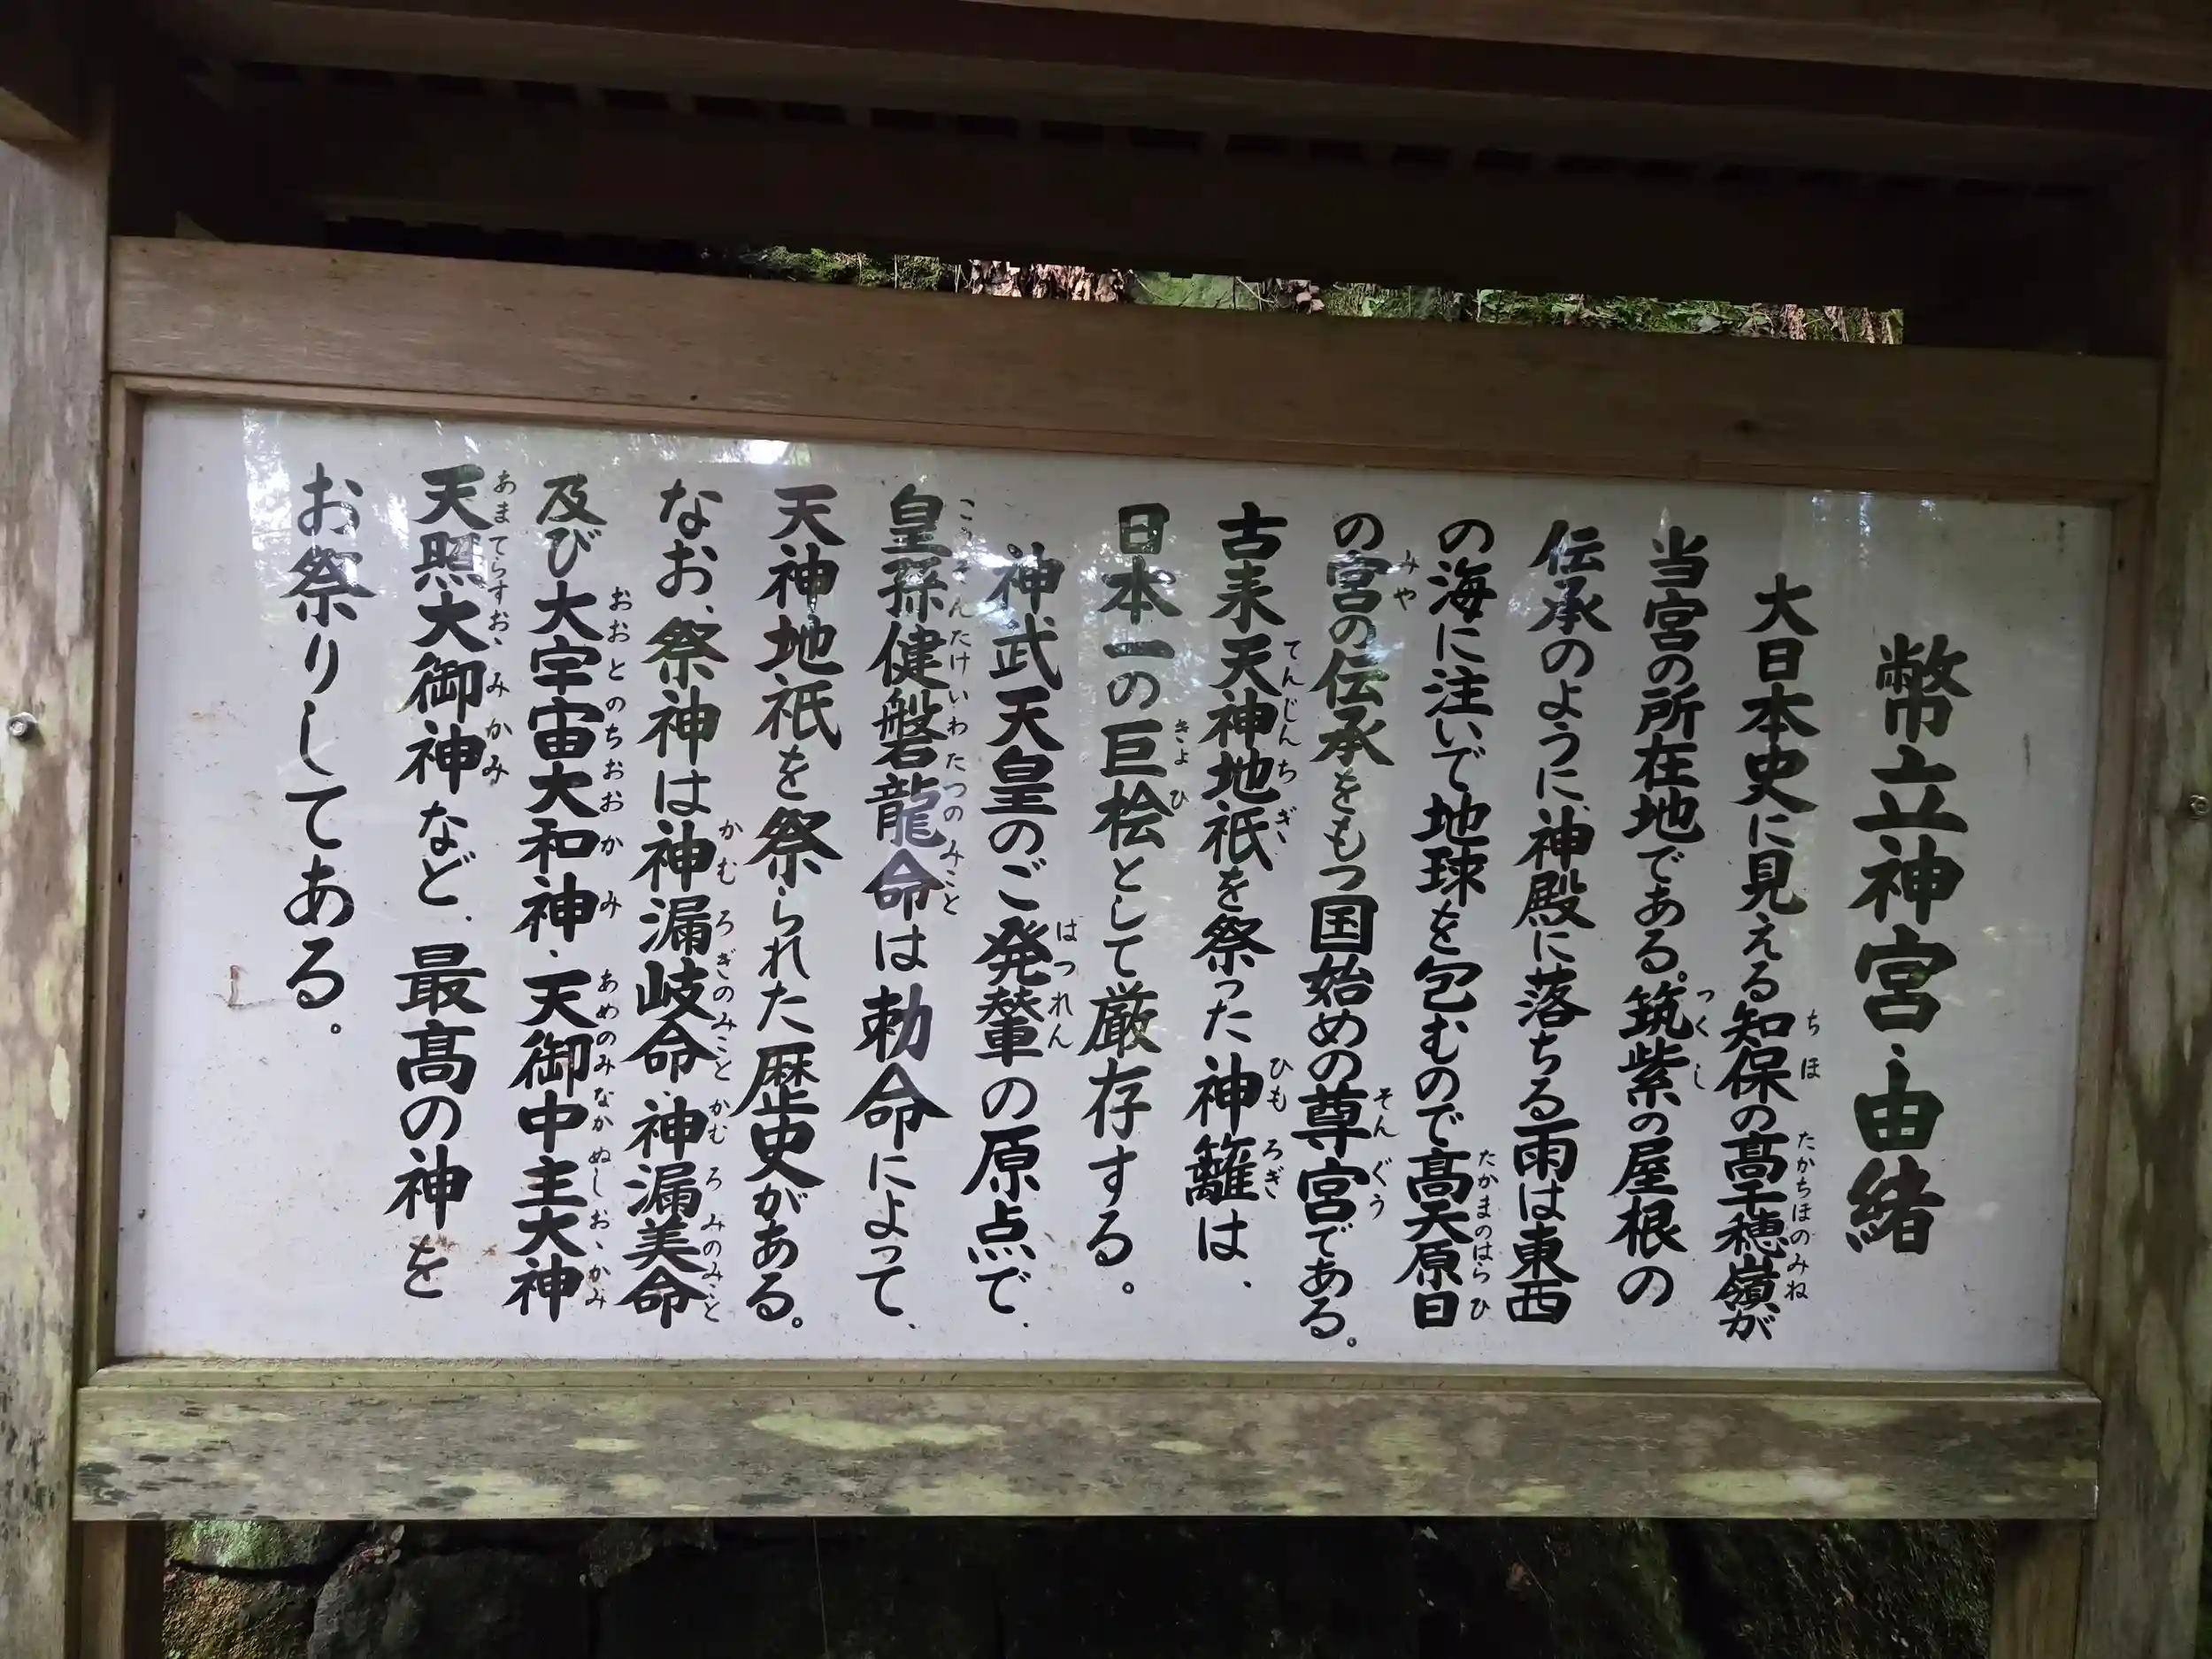 幣立神宮・由緒
大日本史に見える知保の高千穂嶺が
当宮の所在地である。筑紫の屋根の
伝承のように、神殿に落ちる雨は東西
の海に注いで地球を包むので高天原日
の宮の伝承をもつ国始めの尊宮である。
古来天神地祇を祭った神籬は、
日本一の巨桧として厳存する。
神武天皇のご発輦の原点で、
皇孫健磐龍命は勅命によって、
天神地祇を祭られた歴史がある。
なお、祭神は神漏岐命・神漏美命
及び大宇宙大和神・天御中主大神
天照大御神など、最高の神を
お祭りしてある。